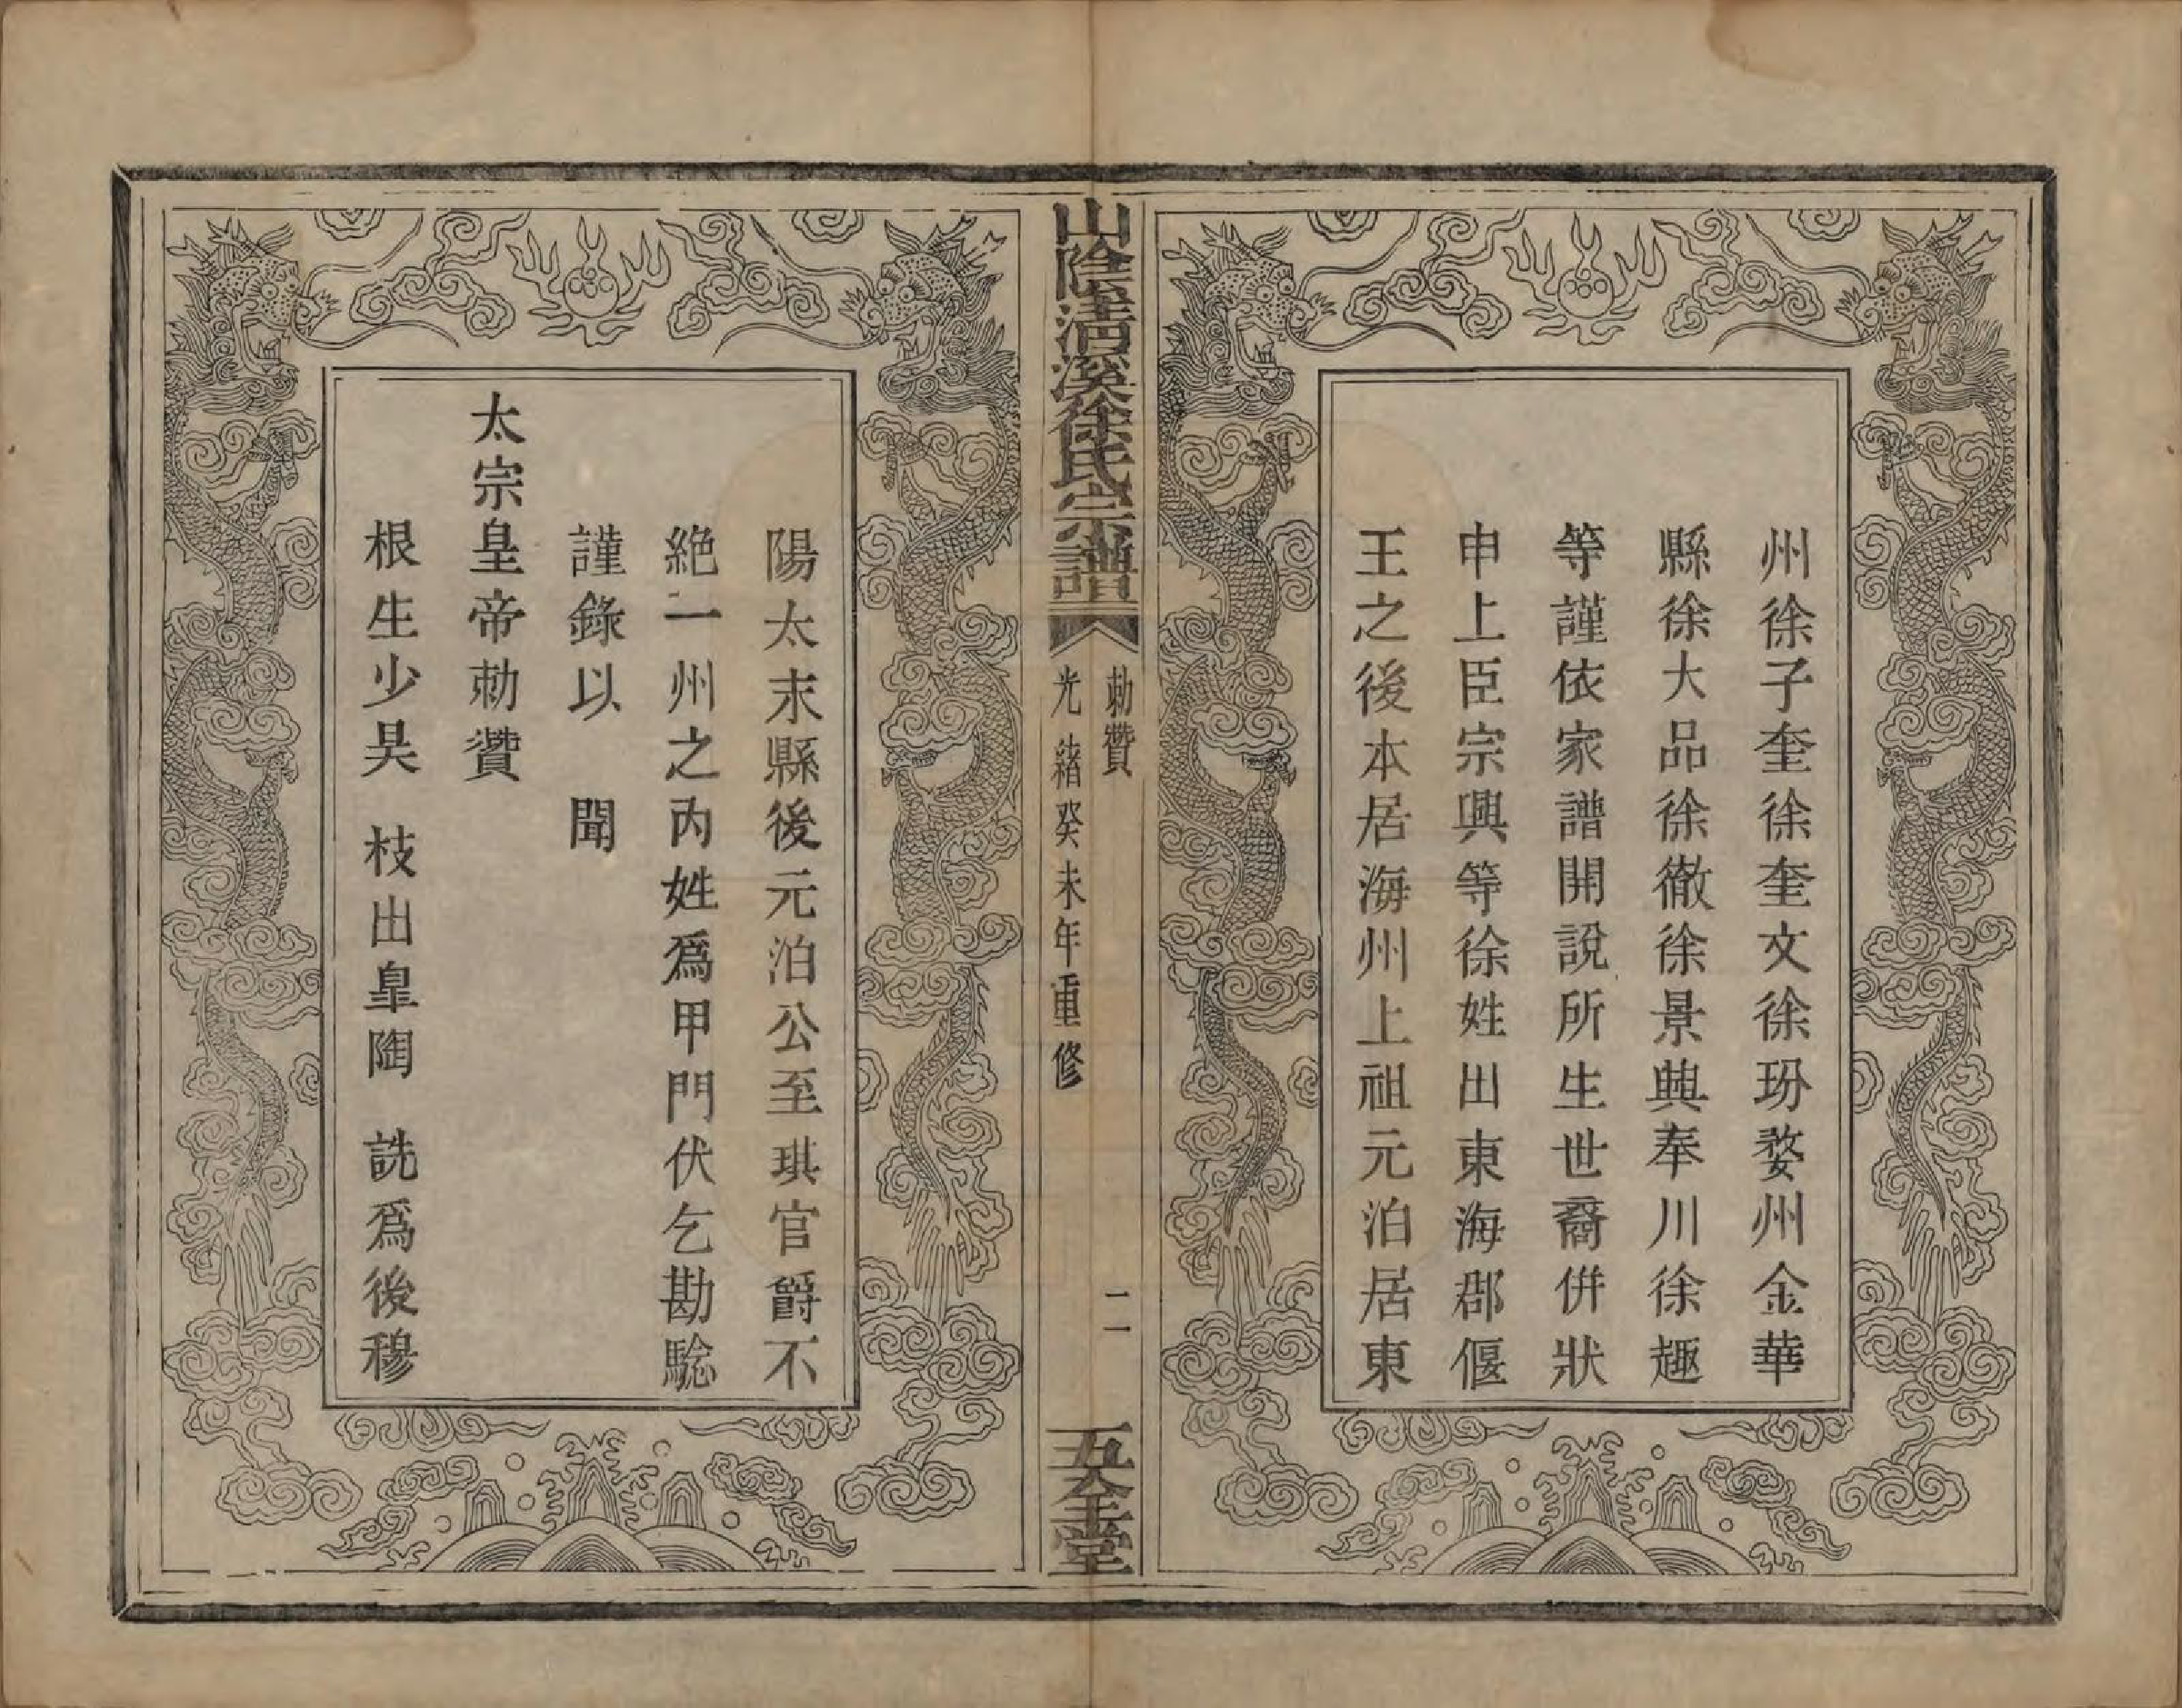 州徐子奎徐奎文徐玢婺州金華
縣徐大品徐徹徐景興奉川徐趣
等謹依家譜開說所生世裔併狀
申上臣宗興等徐姓出東海郡偃
王之後本居海州上祖元洎居東
山陰清溪徐氏宗譜
勅贊
光緒癸未年重修
二
一本堂
陽太末縣後元洎公至琪官爵不
絕一州之內姓爲甲門伏乞勘驗
謹錄以 聞
太宗皇帝勅讚
根生少昊 枝出臯陶 詵爲後穆